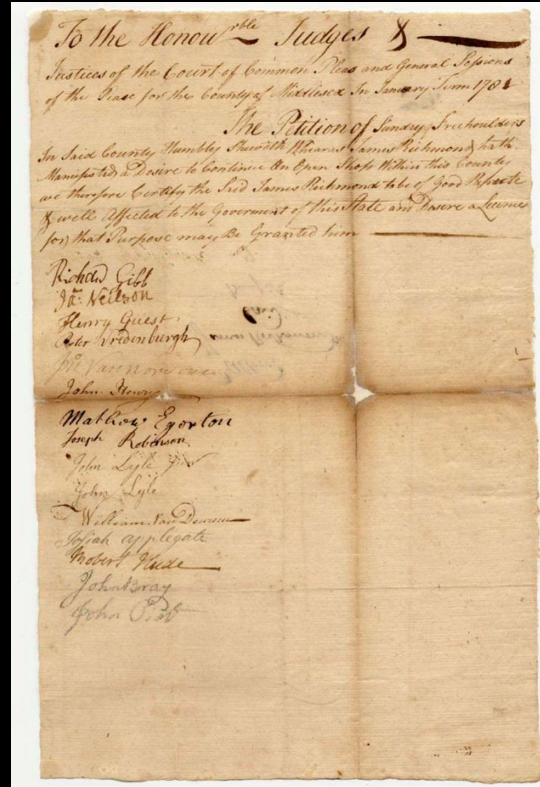 To the Honourble Judges &
Justices of the Court of Common Pleas and General Sessions
of the Peace for the County of Middlesex In January Term 1781
The Petition of Sundry Freeholders
In Said County Humbly Sheweth Whereas James Richmond hath
Manifested a Desire to Continue An Open Shop Within this County
we therefore Certify the Said James Richmond to be of Good Repute
& well Affected to the Goverment of this State and Desire a Licence
for that Purpose may Be Granted him
Richard Gibb
Ja: Neilson
Henry Guest
Peter Vredenburgh
John Henry
Mathew Egerton
Joseph Robinson
John Lyle Junr
John Lyle
William Van Deursen
Josiah Applegate
Robert Hude
John Bray
John Piat